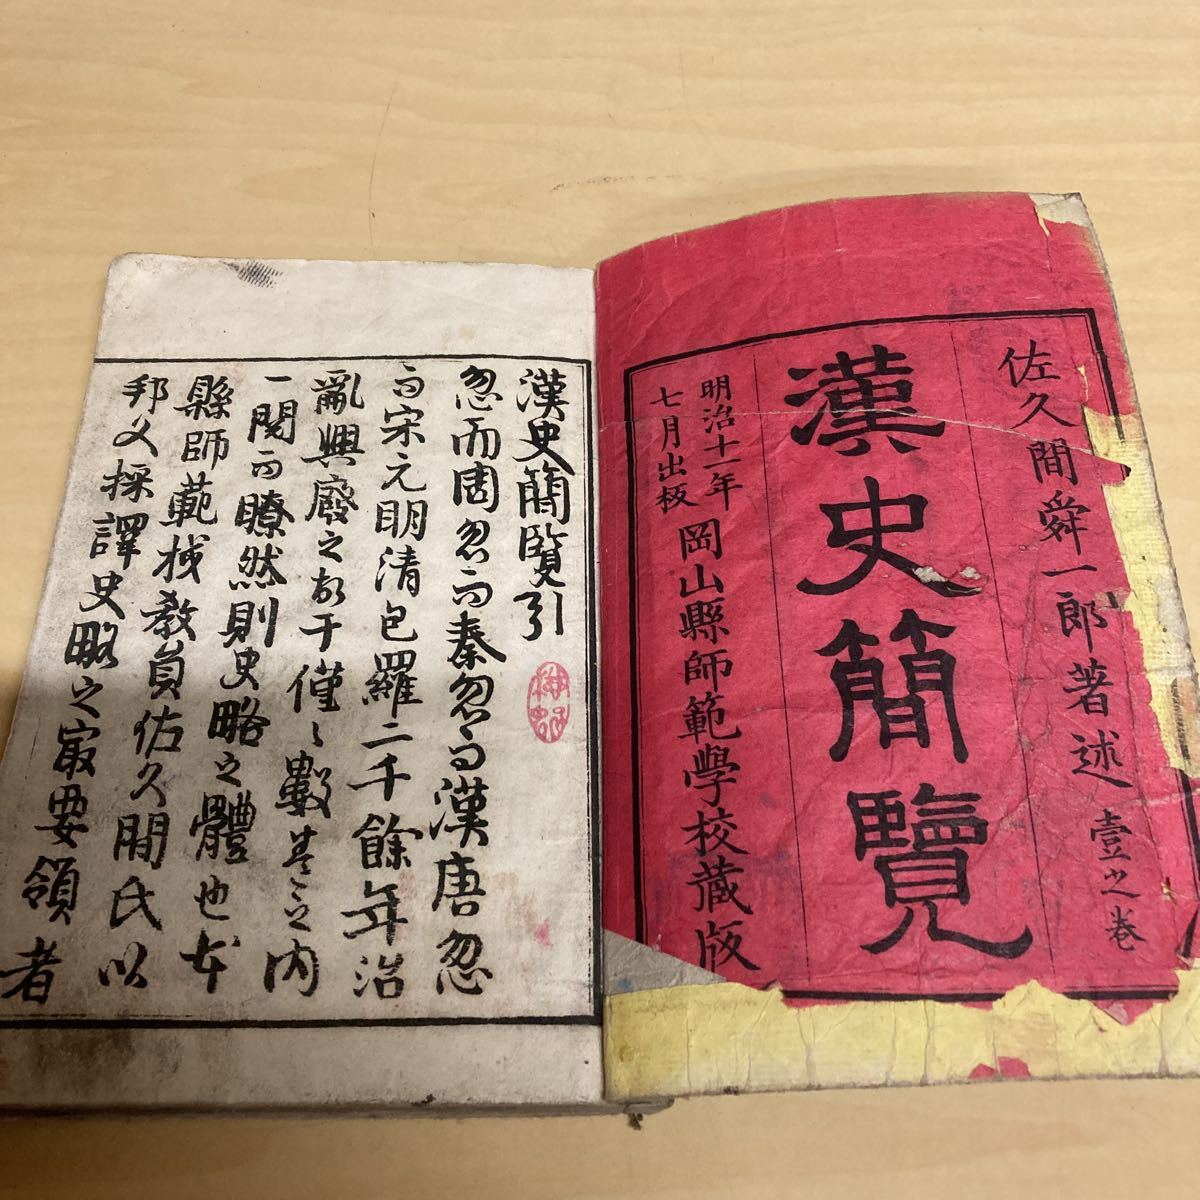 佐久間舜一郎著述 壹之巻
漢史簡覽
明治十一年
七月出板
岡山縣師範學校藏版
漢史簡覽引
忽而周忽而秦忽而漢唐忽
而宋元明清包羅二千餘年治
亂興廢之於于僅々數巻之內
一閱而瞭然則史略之體也本
縣師範校教員佐久間氏以
邦文採譯史略之最要領者